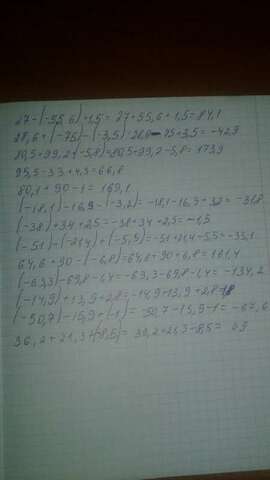 27-(-55,6)+1,5=27+55,6+1,5=84,1
28,6+(-75)-(-3,5)=28,6-75+3,5=-42,9
80,5+99,2+(-5,8)=80,5+99,2-5,8=173,9
95,5-33+4,3=66,8
80,1+90-1=169,1
(-18,1)-16,9-(-3,2)=-18,1-16,9+3,2=-31,8
(-38)+34+2,5=-38+34+2,5=-1,5
(-51)-(-21,4)+(-5,5)=-51+21,4-5,5=-35,1
64,6+90-(-6,8)=64,6+90+6,8=161,4
(-63,3)-69,8-1,4=-63,3-69,8-1,4=-134,2
(-14,9)+13,9+2,8=-14,9+13,9+2,8
(-50,7)-15,9+(-1)=-50,7-15,9-1=-67,6
36,2+21,3+(-8,5)=36,2+21,3-8,5=49